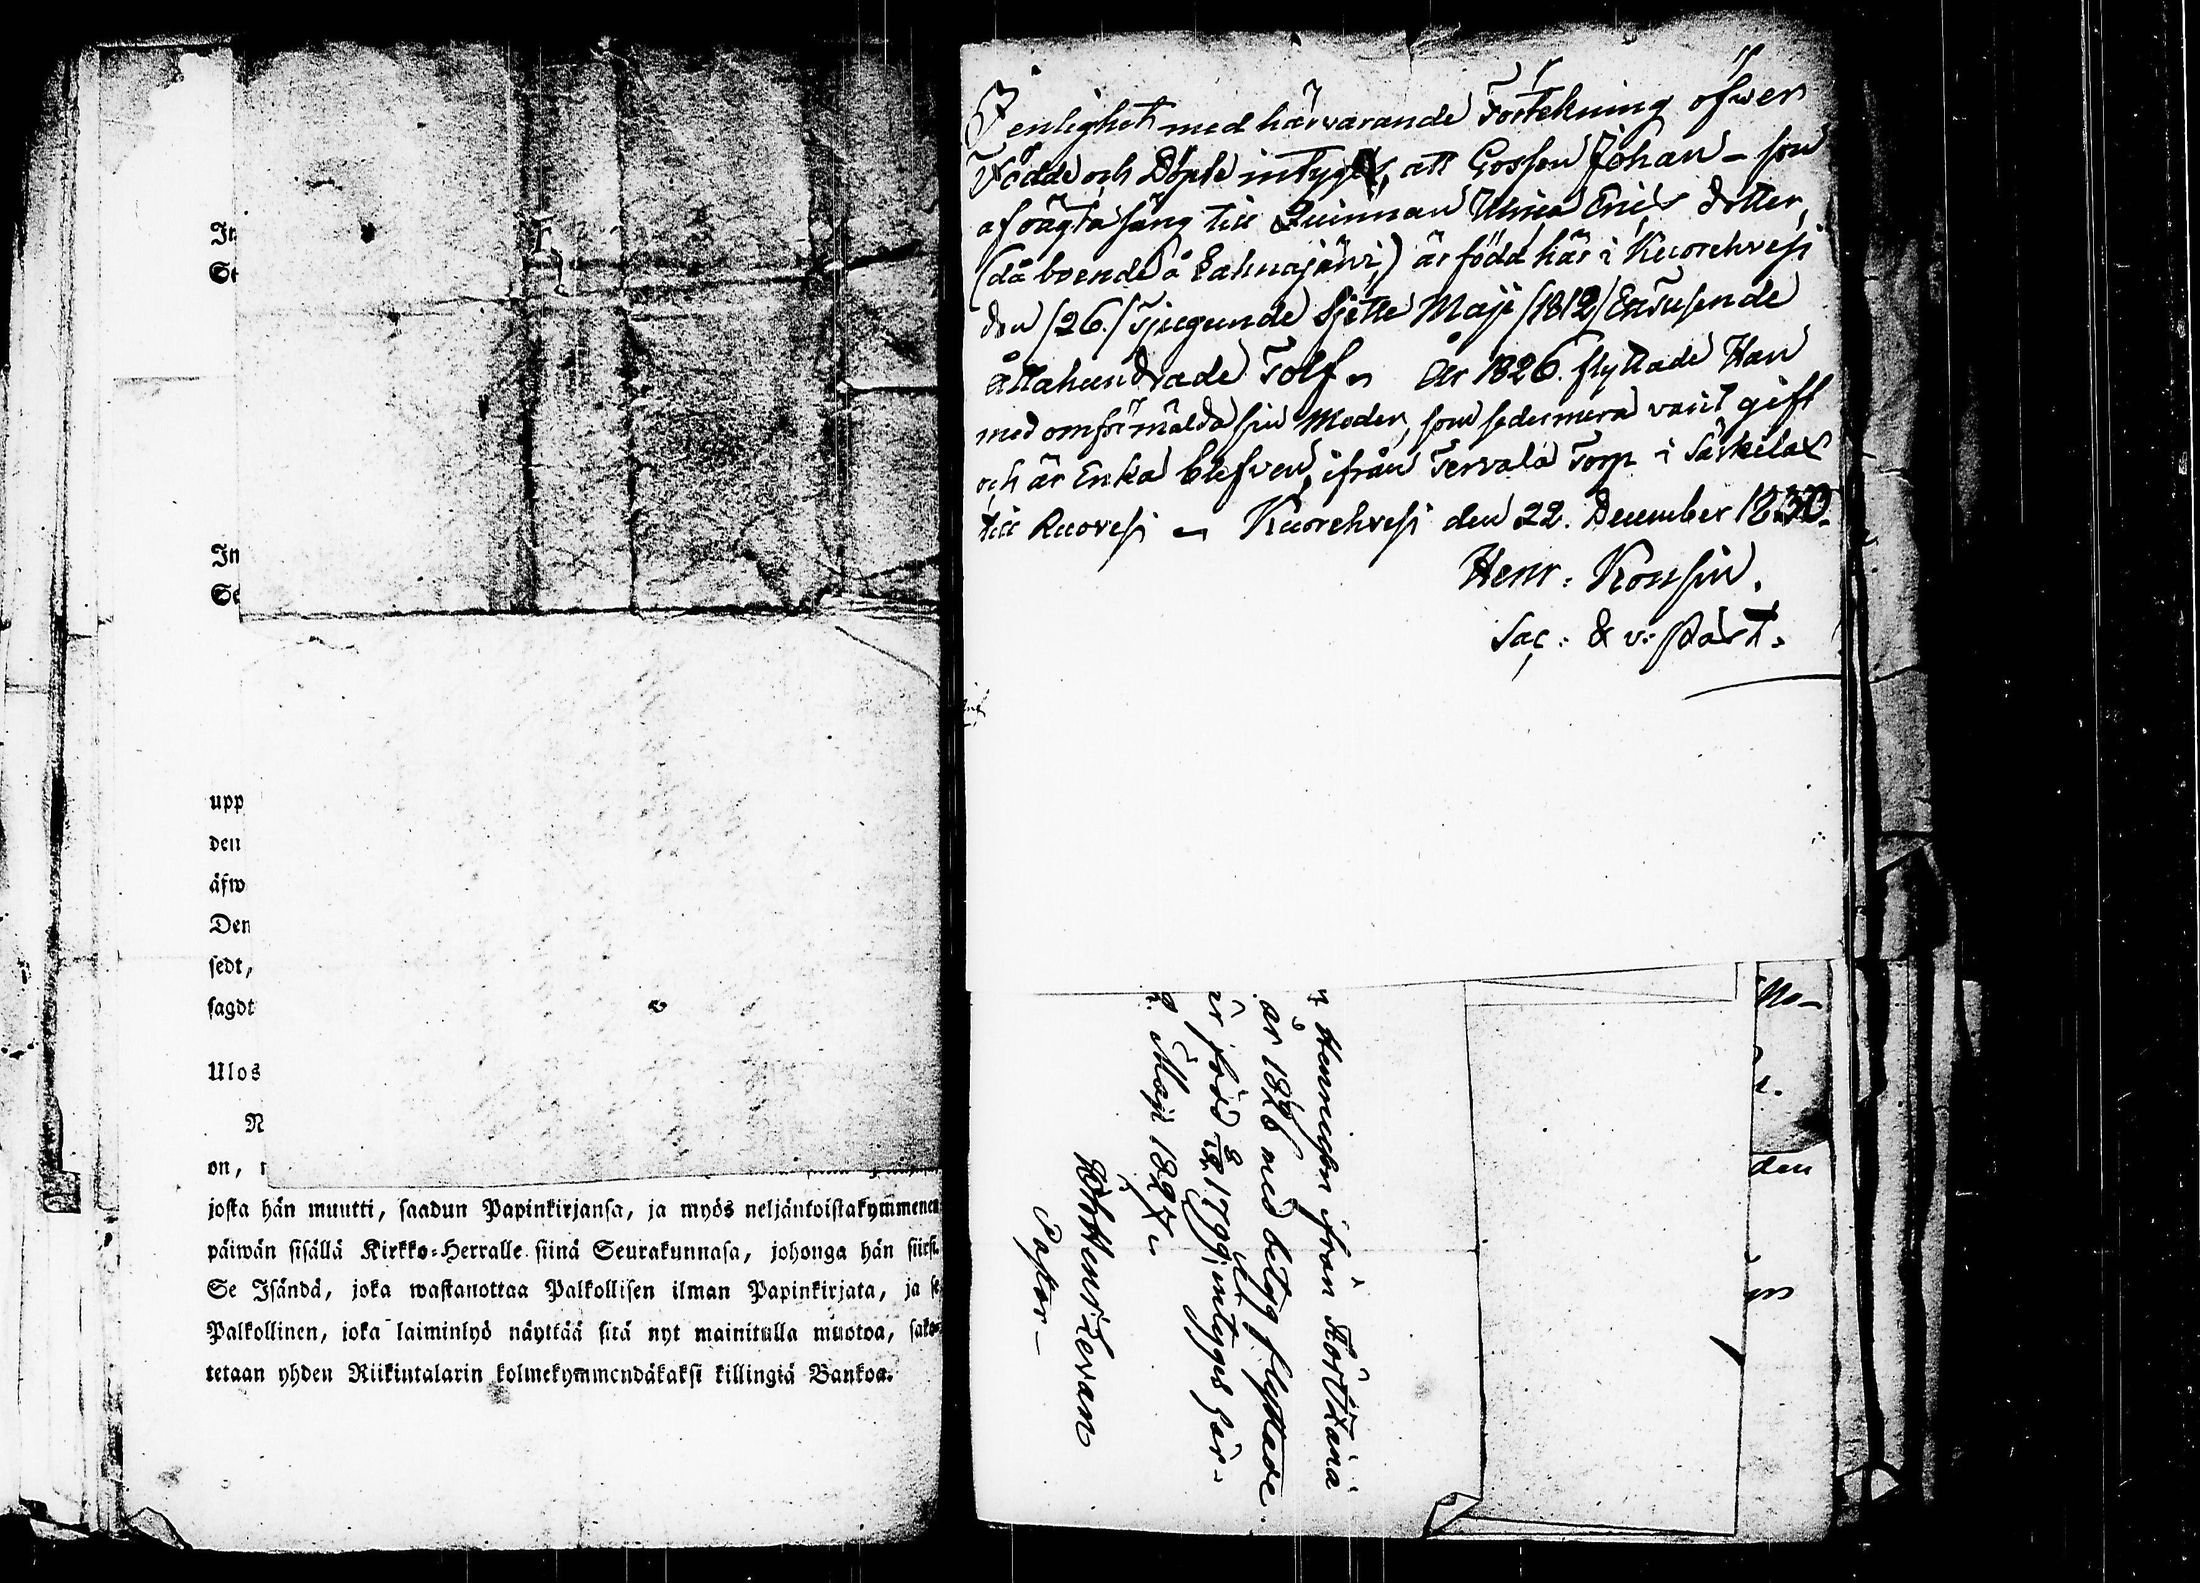 In
Se
In
Se
upp
den
äfw
Den
sedt,
sagdt
Ulos
N
on,
josta hän muutti, saadun Papinkirjansa, ja myös neljäntoistakymmenen
päiwän sisällä Kirkko-Herralle siinä Seurakunnasa, johonga hän siirsi.
Se Isändä, joka wastanottaa Palkollisen ilman Papinkirjata, ja se
Palkollinen, joka laiminlyö näyttää sitä nyt mainitulla muotoa, sako-
tetaan yhden Riikintalarin kolmekymmendäkaksi killingiä Bankoa.
I enlighet med härvarande Förtekning öfwer
Födde och Döpte intygas, att Gossen Johan - son
af oägta säng till Quinnan Ulrica Erics dotter,
(då boende å Lahnajärvi,) är född här i Kuorehvesi
den /26./ Tjugunde Sjette Maji /1812/ Ettusende
Åttahundrade Tolf. År 1826. flyttade Han
med omförmälda sin Moder, som sedermera varit gift
och är Enka blefven, ifrån Tervala Torp i Särkilax
till Ruovesi - Kuorehvesi den 22. December 1830.
Henr. Konsin.
Sac: & v. Past.
Henricsson ifrån
år 1826 med betyg flyttade
är född 1799, intygas här-
Maji 1827.
Henr Levan
Pastor -
No-
den